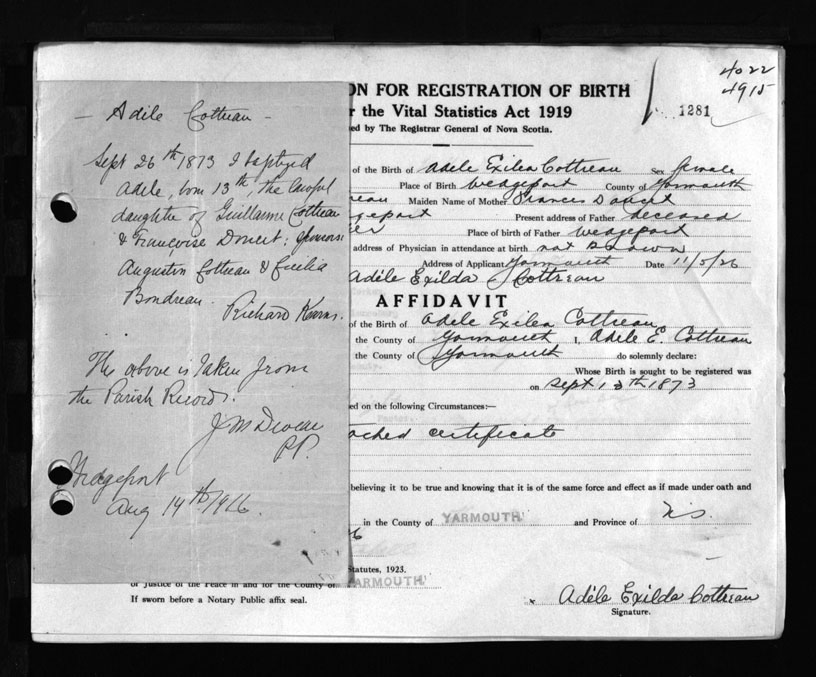 — Adile Cottreau —
Sept 26th 1873 I baptized
Adile, born 13th, the lawful
daughter of Guillaume Cottreau
& Françoise Doucet; sponsors
Augustin Cottreau & Cecilia
Boudreau.
Richard Kearns.
The above is taken from
the Parish Records.
P.P.
Wedgeport
Aug 14th
4022
4915
1281
ON FOR REGISTRATION OF BIRTH
r the Vital Statistics Act 1919
ed by The Registrar General of Nova Scotia.
of the Birth of Adele Exilea Cottreau Sex female
Place of Birth Wedgeport County of Yarmouth
eau Maiden Name of Mother Frances
geport Present address of Father deceased
er Place of birth of Father Wedgeport
address of Physician in attendance at birth not known
Address of Applicant Yarmouth Date 11/5/26
Adele Exilda Cottreau
AFFIDAVIT
of the Birth of Adele Exilea Cottreau
the County of Yarmouth I, Adele E. Cottreau
the County of Yarmouth do solemnly declare:
Whose Birth is sought to be registered was
on Sept 13th 1873
ed on the following Circumstances:—
ached certificate
believing it to be true and knowing that it is of the same force and effect as if made under oath and
in the County of YARMOUTH and Province of N.S.
Statutes, 1923.
or Justice of the Peace in and for the County of YARMOUTH
If sworn before a Notary Public affix seal.
x Adéle Exilda Cottreau
Signature.